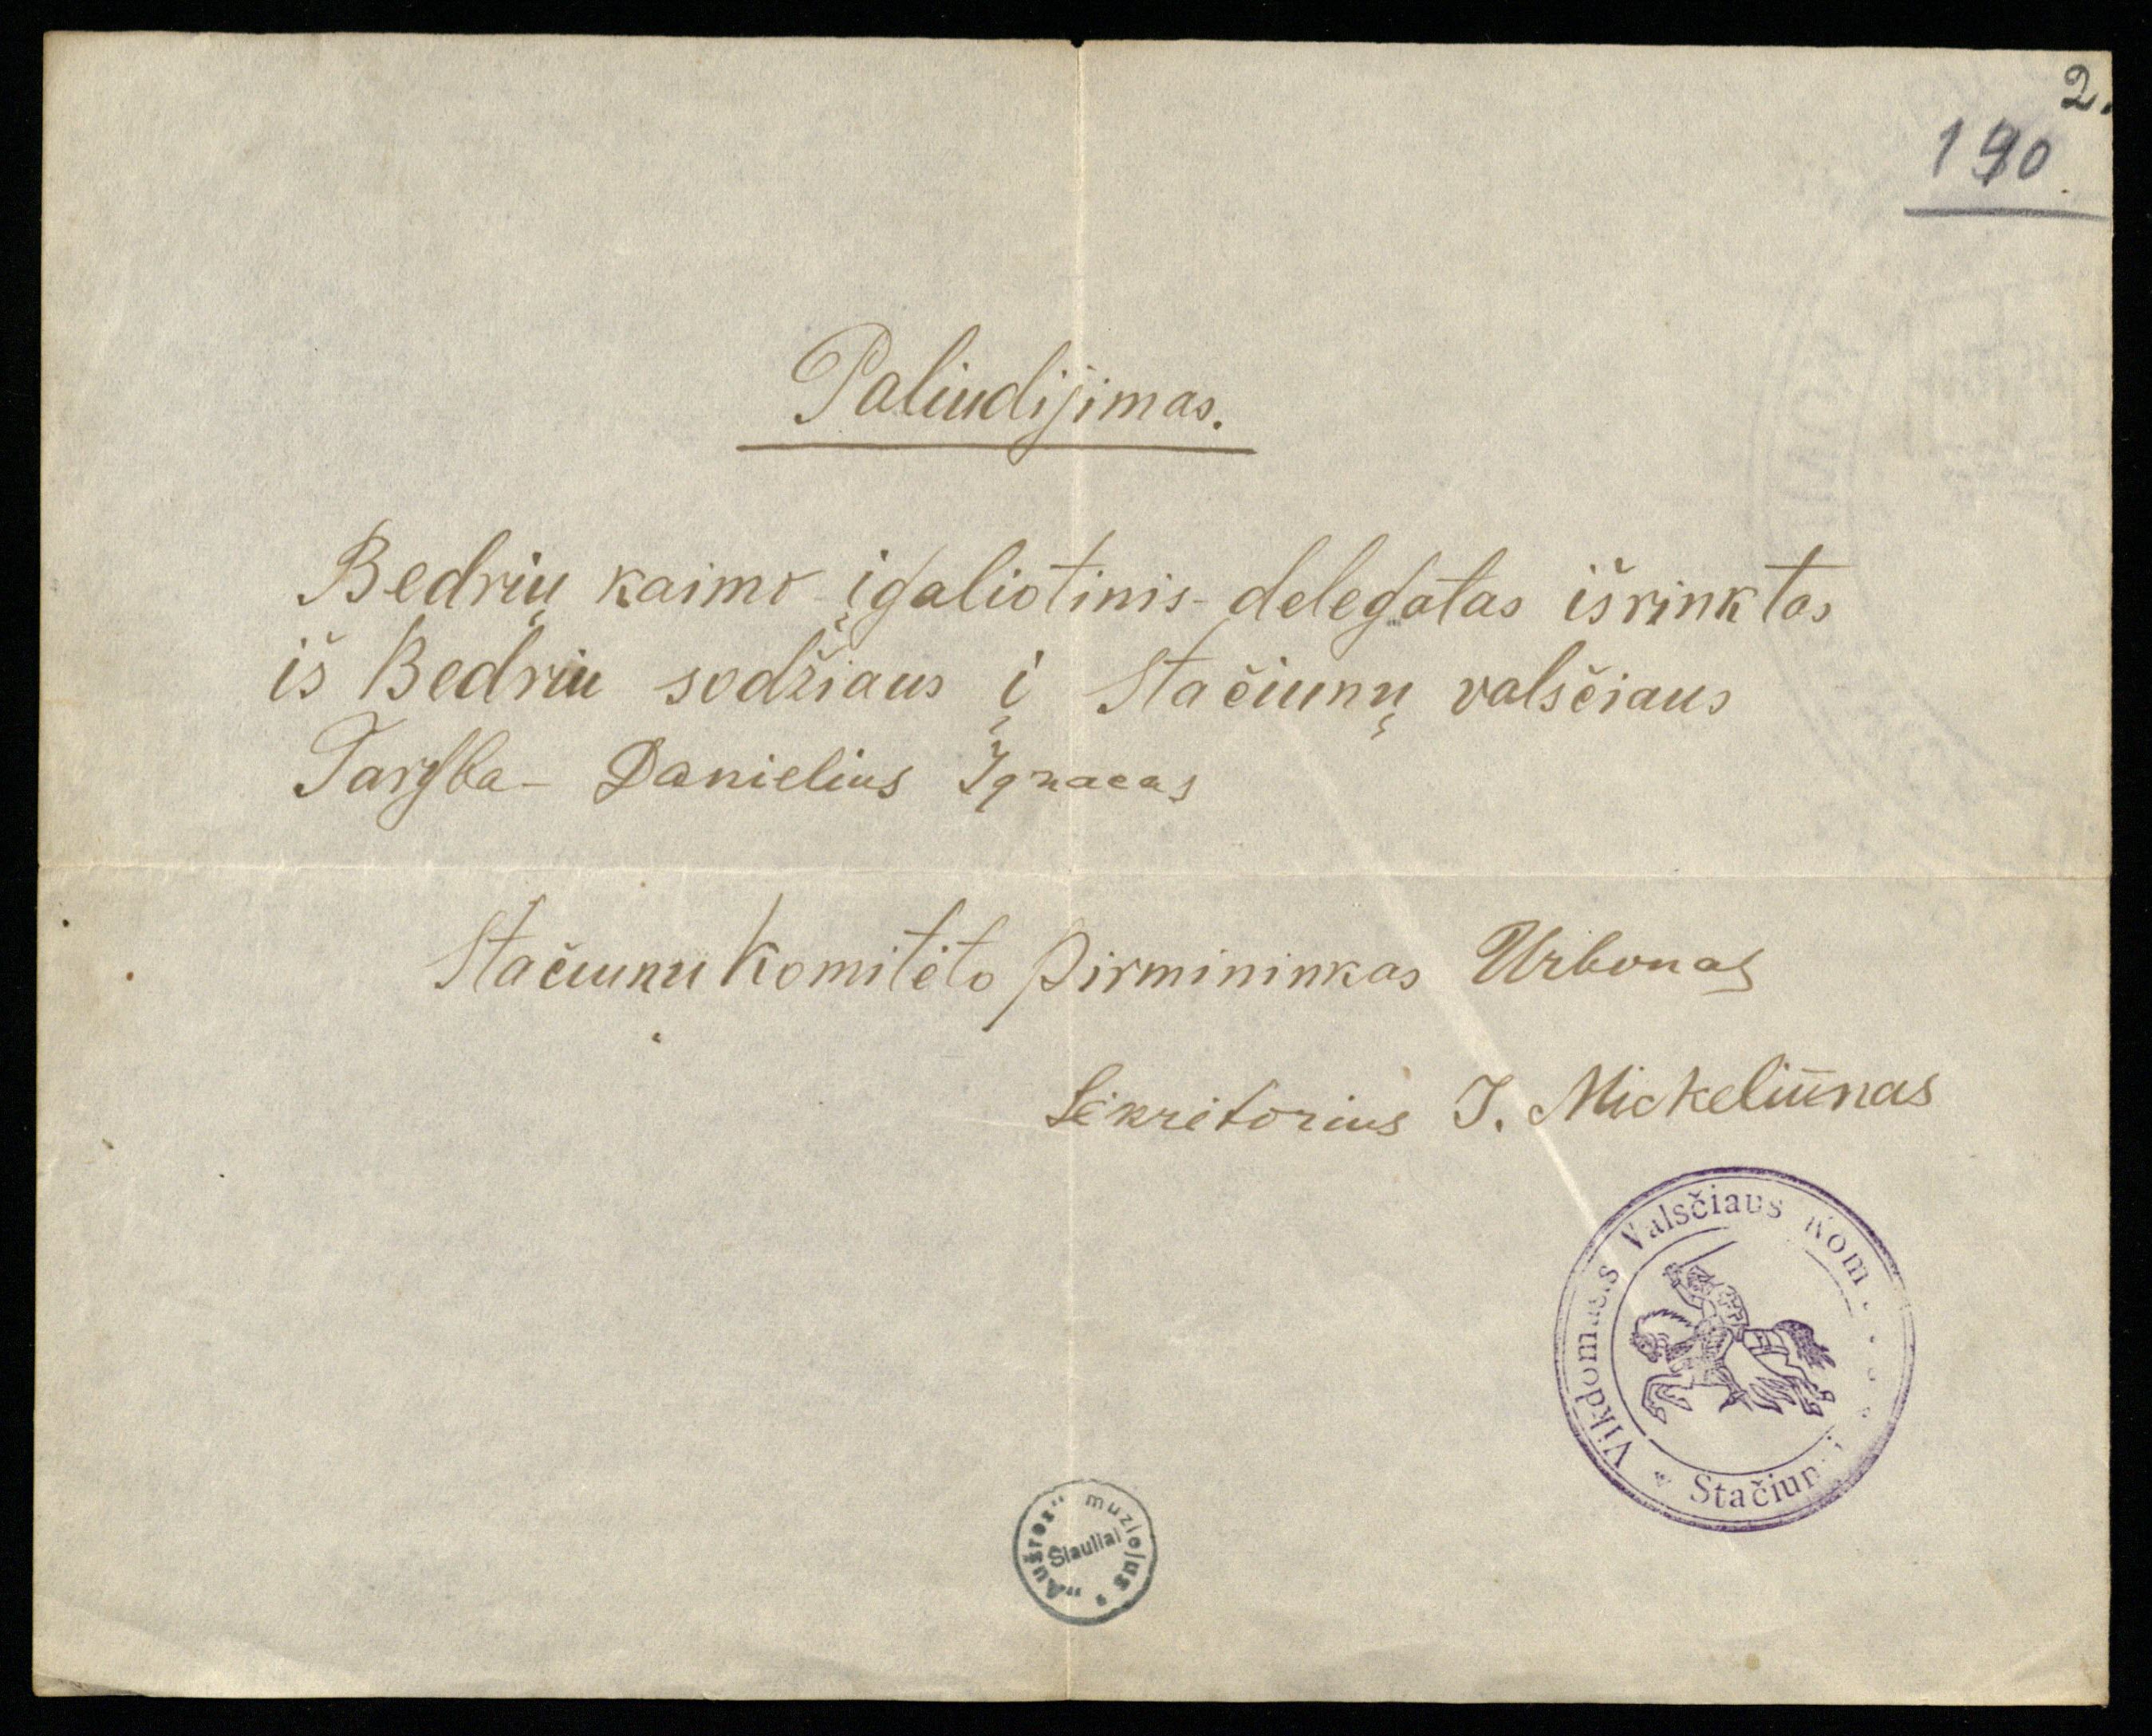 2.
190.
Paliudijimas.
Bedrių kaimo įgaliotinis-delegatas išrinktas
iš Bedriu sodžiaus į Stačiunų valsčiaus
Taryba- Danielius Ignacas
Stačiunu Komitėto pirmininkas Urbonas
Sėkrėtorius J. Mickeliūnas
Valsčiaus Kom
Stačiun
„Aušros" muziejus
Šiauliai